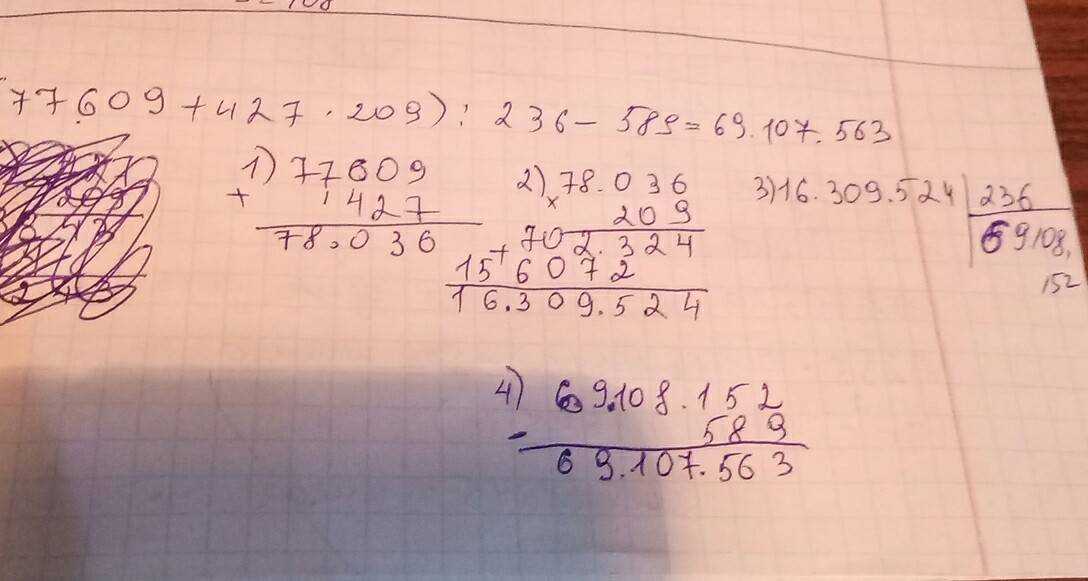 77609 + 427 · 209) : 236 - 589 = 69.107.563
1) 77609
+ 427
78.036
2) 78.036
× 209
702.324
+
15 6072
16.309.524
3) 16.309.524 | 236
69108,
152
4) 69.108.152
- 589
69.107.563